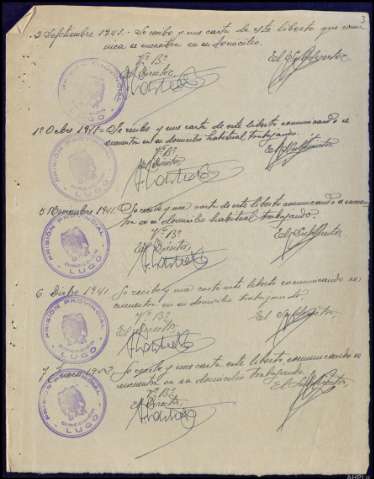 3
2 Septiembre 1941.- Se recibe y una carta de este liberto que
se encuentra en su domicilio.
Vº Bº
El Director
El Subdirector
PRISIÓN PROVINCIAL
LUGO
1º Octbre 1941- Se recibe y una carta de este liberto comunicando se
encuentra en su domicilio habitual trabajando.
Vº Bº
El Director
El Subdirector
PRISIÓN PROVINCIAL
LUGO
5 Noviembre 1941. Se recibe y una carta de este liberto comunicando
en su domicilio habitual trabajando.
Vº Bº
El Director
El Subdirector
PRISIÓN PROVINCIAL
LUGO
6 Dicbre 1941. Se recibe y una carta este liberto comunicando se
encuentra en su domicilio trabajando.
Vº Bº
El Director
El Subdirector
PRISIÓN PROVINCIAL
LUGO
7
Se recibe y una carta este liberto, comunicando se
encuentra en su domicilio trabajando.
Vº Bº
El Director
El Subdirector
PRISIÓN PROVINCIAL
LUGO